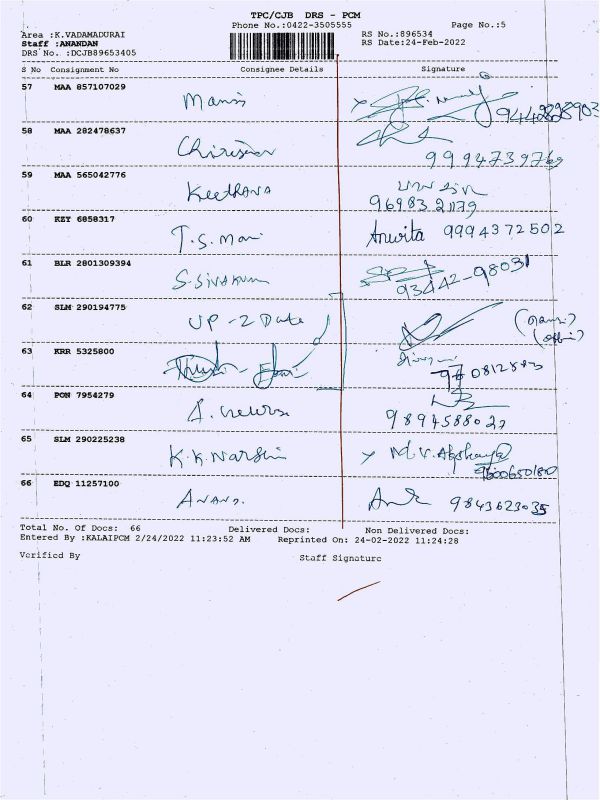 TPC/CJB DRS - PCM
Phone No.:0422-3505555 Page No.:5
Area :K.VADAMADURAI RS No.:896534
Staff :ANANDAN RS Date:24-Feb-2022
DRS No. :DCJB89653405
S No Consignment No Consignee Details Signature
57 MAA 857107029
Manis
58 MAA 282478637
9994739769
59 MAA 565042776
Keethana
9698321179
60 KZY 6858317
T.S. Mani Anvita 9994372502
61 BLR 2801309394
S. Sivakum 93442-98031
62 SLM 290194775
UP-2 Date
63 KRR 5325800
64 PON 7954279
65 SLM 290225238
K.K. Narshi M.V. Akshaya
66 EDQ 11257100
Anand. 9843623035
Total No. Of Docs: 66 Delivered Docs: Non Delivered Docs:
Entered By :KALAIPCM 2/24/2022 11:23:52 AM Reprinted On: 24-02-2022 11:24:28
Verified By Staff Signature